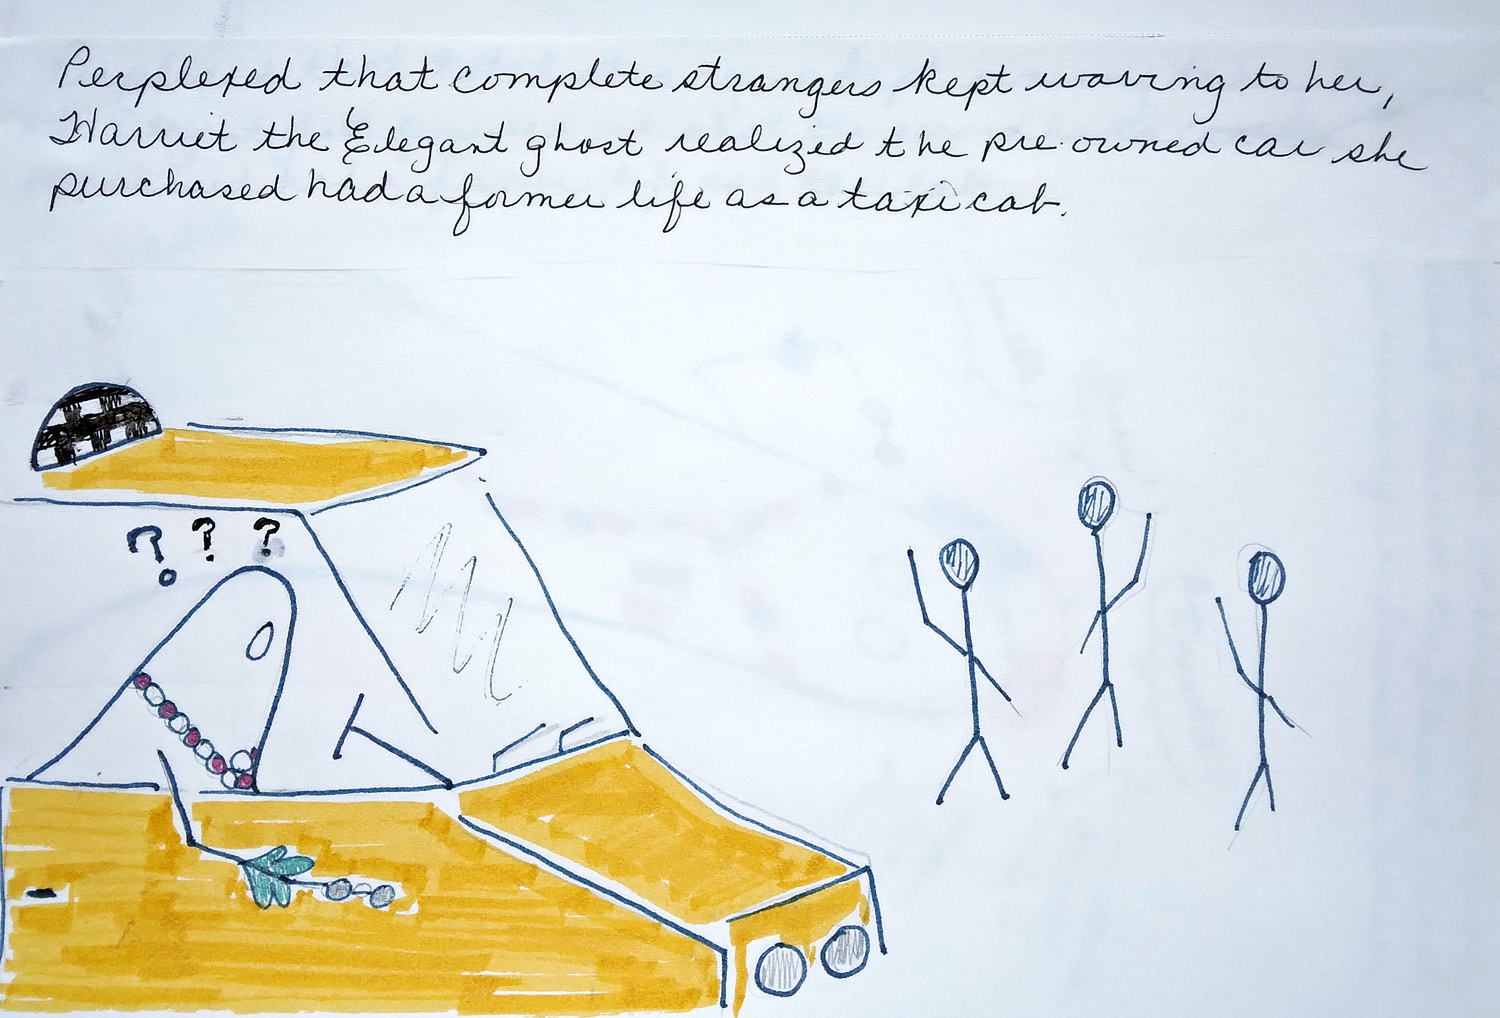 Perplexed that complete strangers kept waving to her,
Harriet the Elegant ghost realized the pre-owned car she
purchased had a former life as a taxi cab.
? ? ?